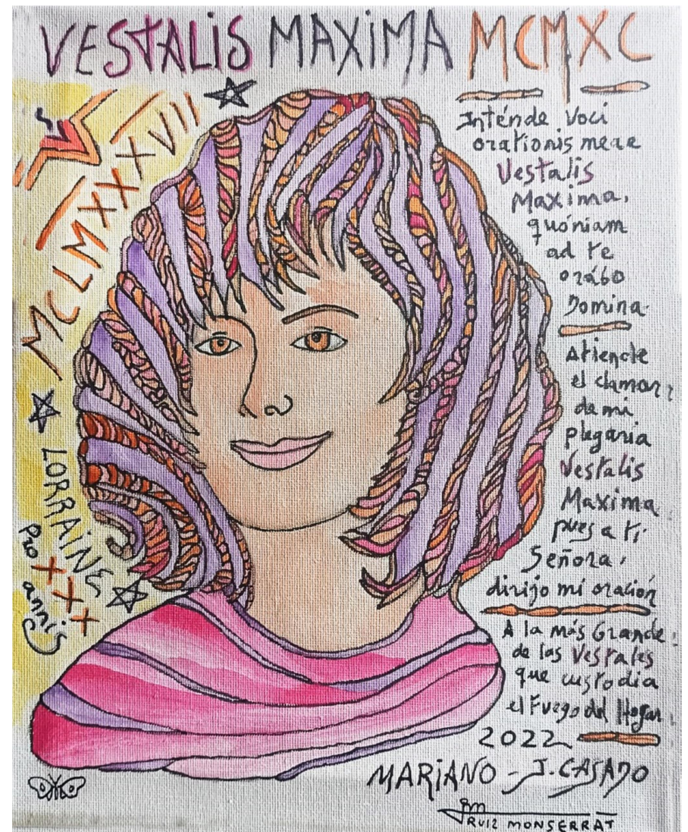 VESTALIS MAXIMA MCMXC
MCLMXXXVII
LORRAINE
Pro XXX
annis
Inténde Voci
orationis meae
Vestalis
Maxima,
quóniam
ad te
orábo
Domina.
Atiende
el clamor
de mi
plegaria
Vestalis
Maxima
pues a ti,
Señora,
dirijo mi oración
A la más Grande
de las Vestales
que custodia
el Fuego del Hogar
2022
MARIANO - J. CASADO
RUIZ MONSERRAT